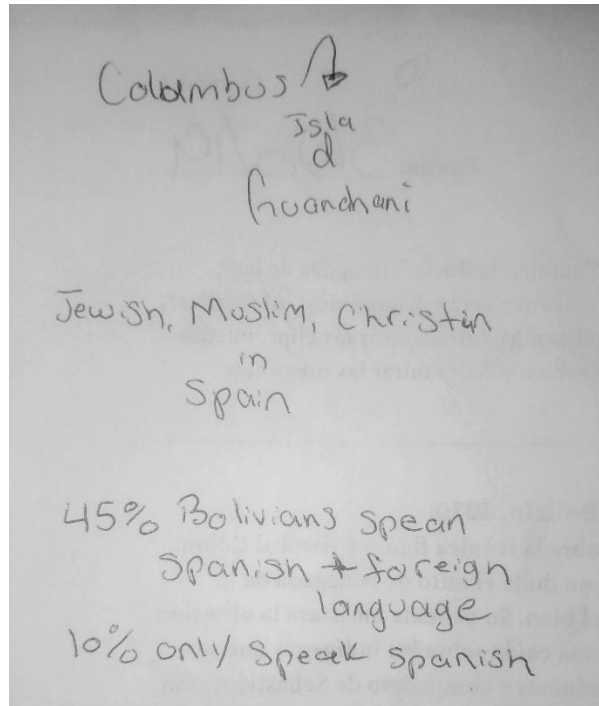 Colombus
Isla
d
Guanchani
Jewish, Muslim, Christin
in
Spain
45% Bolivians spean
Spanish + foreign
language
10% only speak spanish